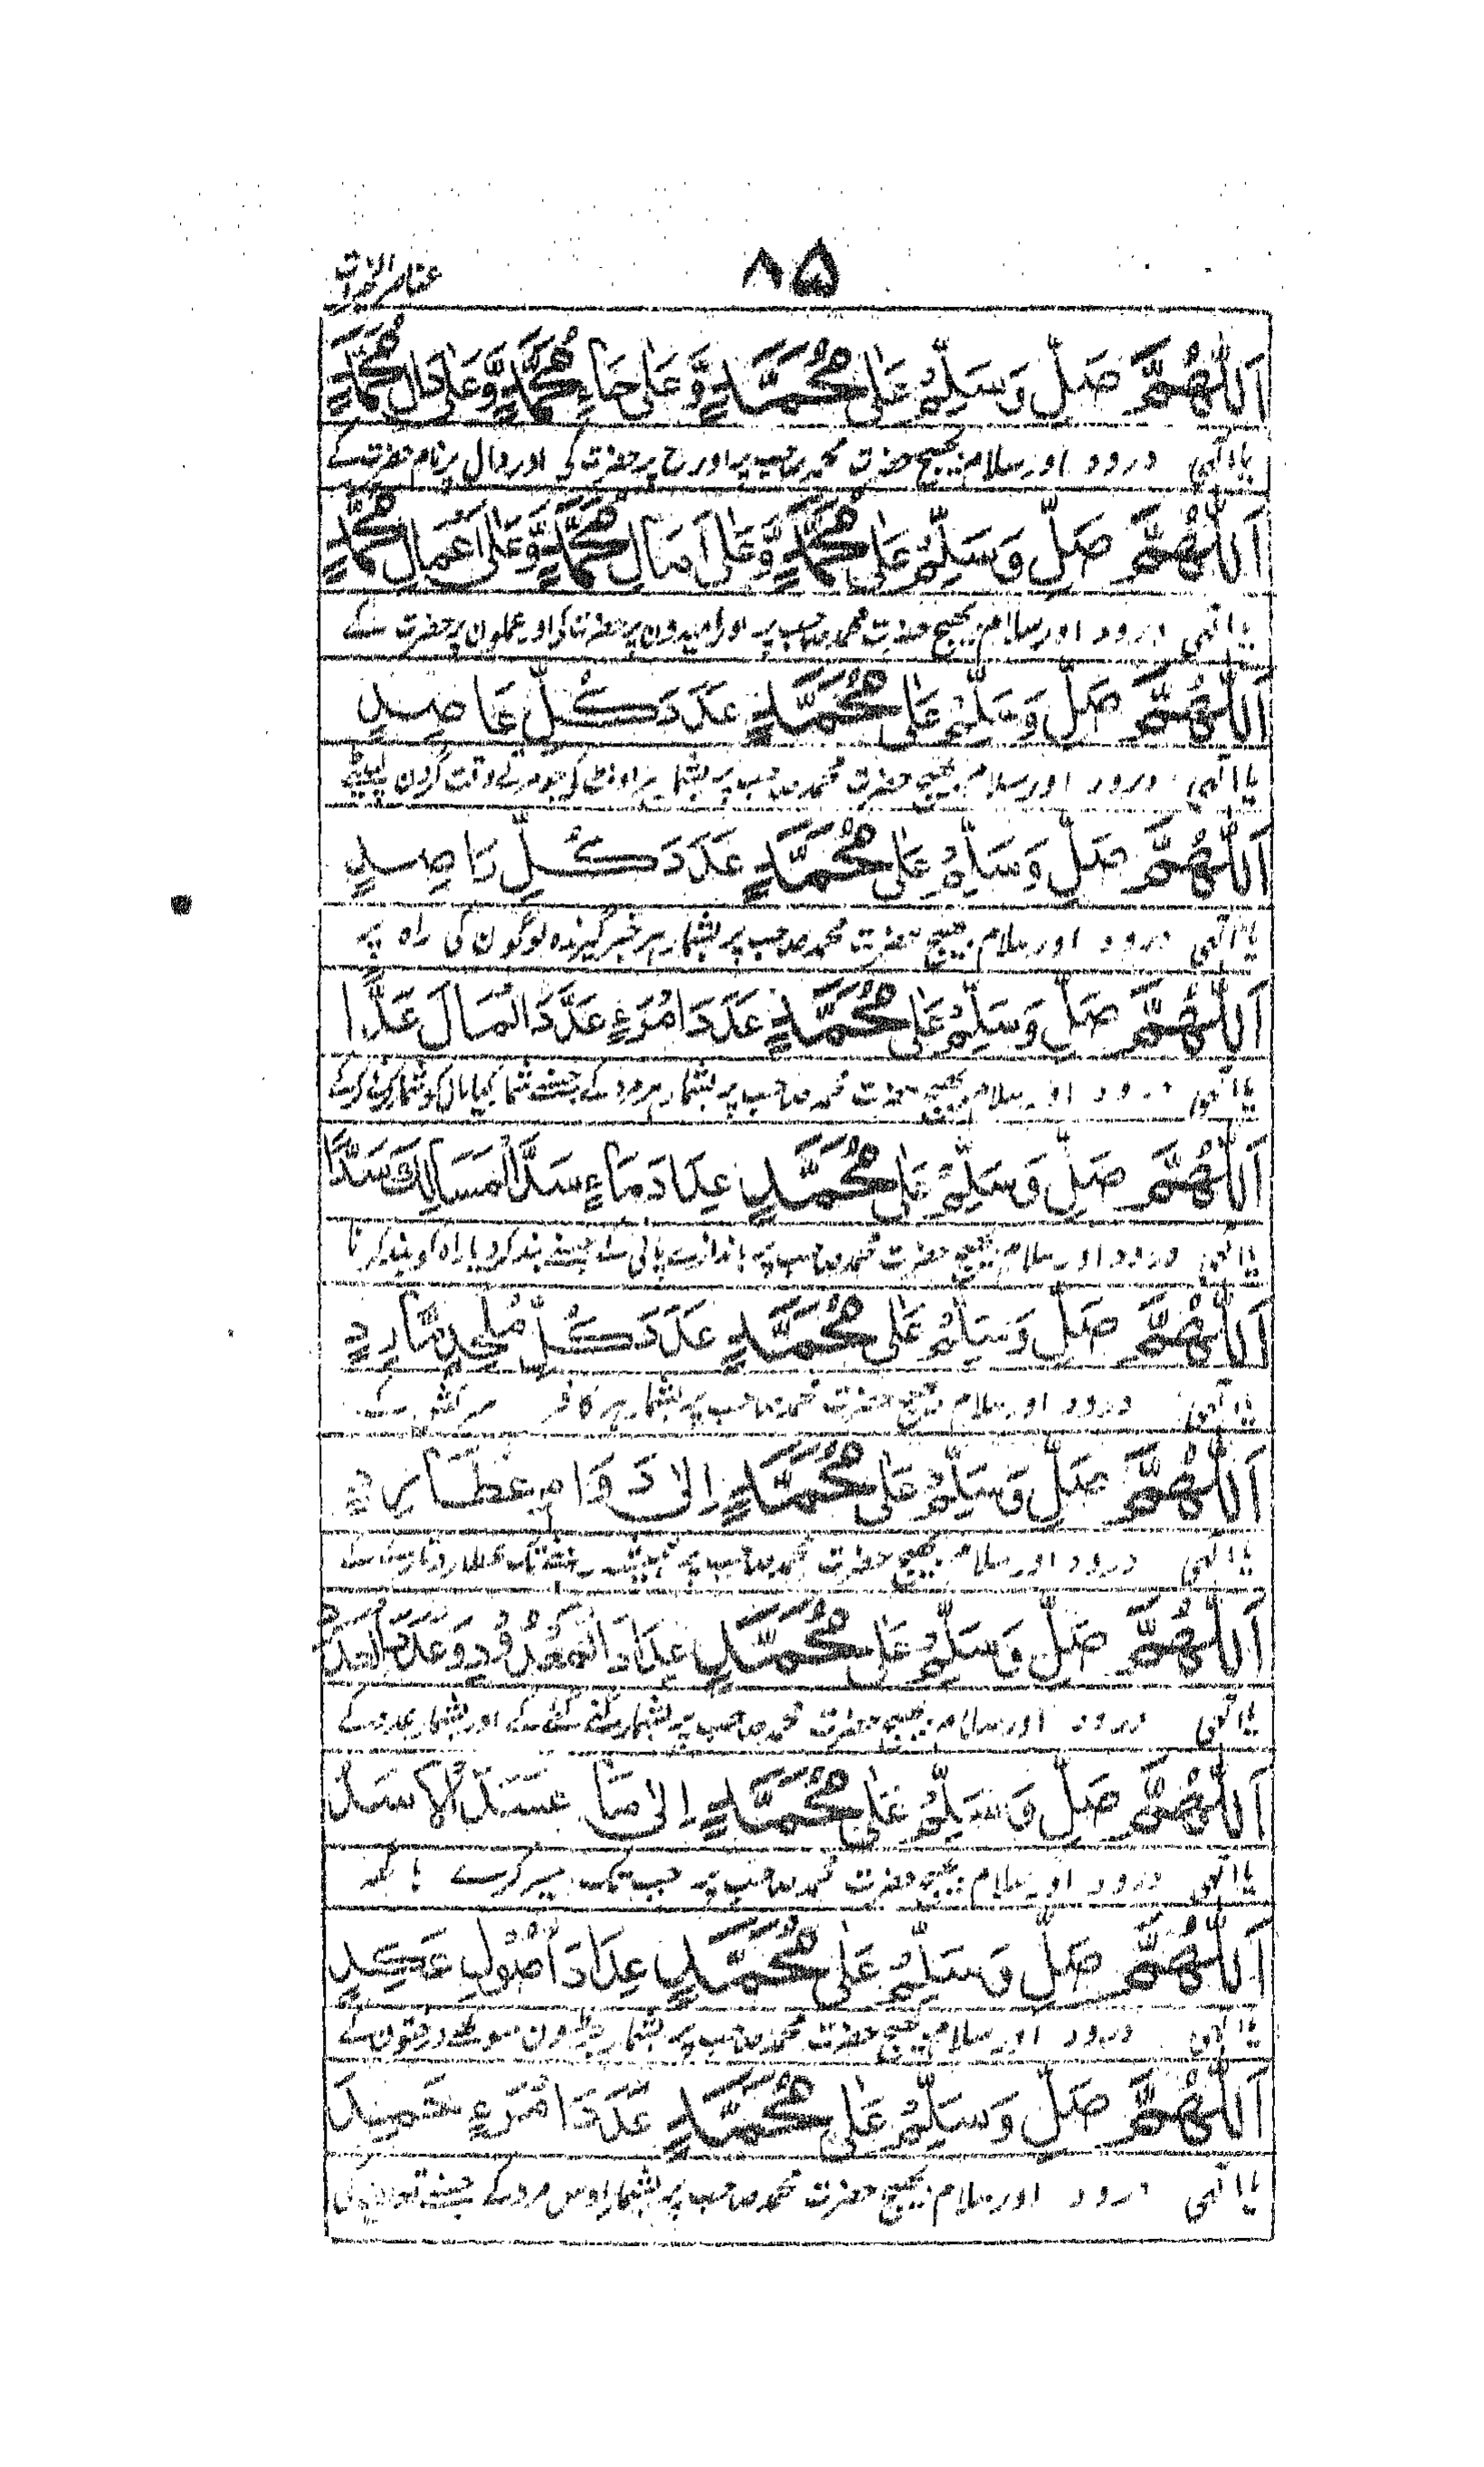 ۸۵
اَللّٰهُمَّ صَلِّ وَسَلِّمْ عَلٰى مُحَمَّدٍ وَّعَلٰى حَاءِ مُحَمَّدٍ وَّعَلٰى دَالِ مُحَمَّدٍ
یا الٰہی درود اور سلام بھیج حضرت محمد صاحب پر اور ح پر حضرت کی اور دال پر نام حضرت کے
اَللّٰهُمَّ صَلِّ وَسَلِّمْ عَلٰى مُحَمَّدٍ وَّعَلٰى اٰمَالِ مُحَمَّدٍ وَّعَلٰى اَعْمَالِ مُحَمَّدٍ
یا الٰہی درود اور سلام بھیج حضرت محمد صاحب پر اور امیدون پر حضرت کی اور عملون پر حضرت کے
اَللّٰهُمَّ صَلِّ وَسَلِّمْ عَلٰى مُحَمَّدٍ عَدَدَ كُلِّ عَاصِدٍ
یا الٰہی درود اور سلام بھیج حضرت محمد صاحب پر بشمار ہر اونٹ کے جو مرتے وقت گردن لپیٹے
اَللّٰهُمَّ صَلِّ وَسَلِّمْ عَلٰى مُحَمَّدٍ عَدَدَ كُلِّ رَاصِدٍ
یا الٰہی درود اور سلام بھیج حضرت محمد صاحب پر بشمار ہر خبر گیرندہ لوگون کی راہ پر
اَللّٰهُمَّ صَلِّ وَسَلِّمْ عَلٰى مُحَمَّدٍ عَدَدَ امْرَءٍ عَدَّدَ الْمَالَ عَدًّا
یا الٰہی درود اور سلام بھیج حضرت محمد صاحب پر بشمار ہر مرد کے جسنے شمار کیا مال کو شمار کرنے کے
اَللّٰهُمَّ صَلِّ وَسَلِّمْ عَلٰى مُحَمَّدٍ عِدَادَ مَاءٍ سَدَّ الْمَسَالِكَ سَدًّا
یا الٰہی درود اور سلام بھیج حضرت محمد صاحب پر باندازے پانی کے جسنے بند کر دیا راہ کو بند کرنا
اَللّٰهُمَّ صَلِّ وَسَلِّمْ عَلٰى مُحَمَّدٍ عَدَدَ كُلِّ مُلْحِدٍ مَّارِدٍ
یا الٰہی درود اور سلام بھیج حضرت محمد صاحب پر بشمار ہر کافر سرکش کے
اَللّٰهُمَّ صَلِّ وَسَلِّمْ عَلٰى مُحَمَّدٍ اِلٰى دَوَامِ عُطَارِدٍ
یا الٰہی درود اور سلام بھیج حضرت محمد صاحب پر ہمیشہ رہنے تک عطارد کے
اَللّٰهُمَّ صَلِّ وَسَلِّمْ عَلٰى مُحَمَّدٍ عِدَادَ الْمَعْدُوْدِ وَعَدَدَ الْعَدَدِ
یا الٰہی درود اور سلام بھیج حضرت محمد صاحب پر بشمار گنے گئے کے اور بشمار عدد کے
اَللّٰهُمَّ صَلِّ وَسَلِّمْ عَلٰى مُحَمَّدٍ اِلٰى مَا عَسَدَ الْاَسَدُ
یا الٰہی درود اور سلام بھیج حضرت محمد صاحب پر جب تک سیر کرے باگھ
اَللّٰهُمَّ صَلِّ وَسَلِّمْ عَلٰى مُحَمَّدٍ عِدَادَ اُصُوْلِ عَكِدٍ
یا الٰہی درود اور سلام بھیج حضرت محمد صاحب پر بشمار جڑون موٹے درختون کے
اَللّٰهُمَّ صَلِّ وَسَلِّمْ عَلٰى مُحَمَّدٍ عَدَدَ امْرَءٍ حَمِدَ
یا الٰہی درود اور سلام بھیج حضرت محمد صاحب پر بشمار اوس مرد کے جسنے تعریف کی